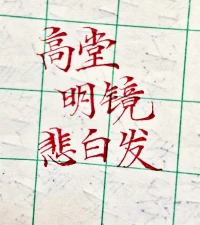 高堂
明镜
悲白发